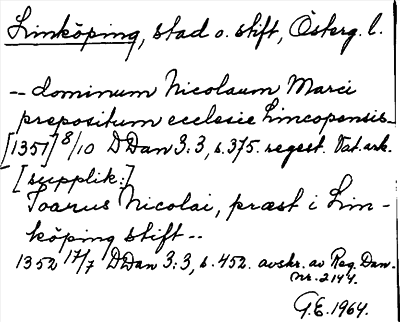 Linköping, stad o. stift, Österg. l.
-- dominum Nicolaum Marci
prepositum ecclesie Lincopensis
[1351] 8/10 DDan 3:3, s. 375. regest. Vat. ark.
[supplik:]
Toarus Nicolai, præst i Lin-
köping stift --
1352 17/7 DDan 3:3, s. 452. avskr. av Reg. Dan.
nr. 2144.
G.E. 1964.